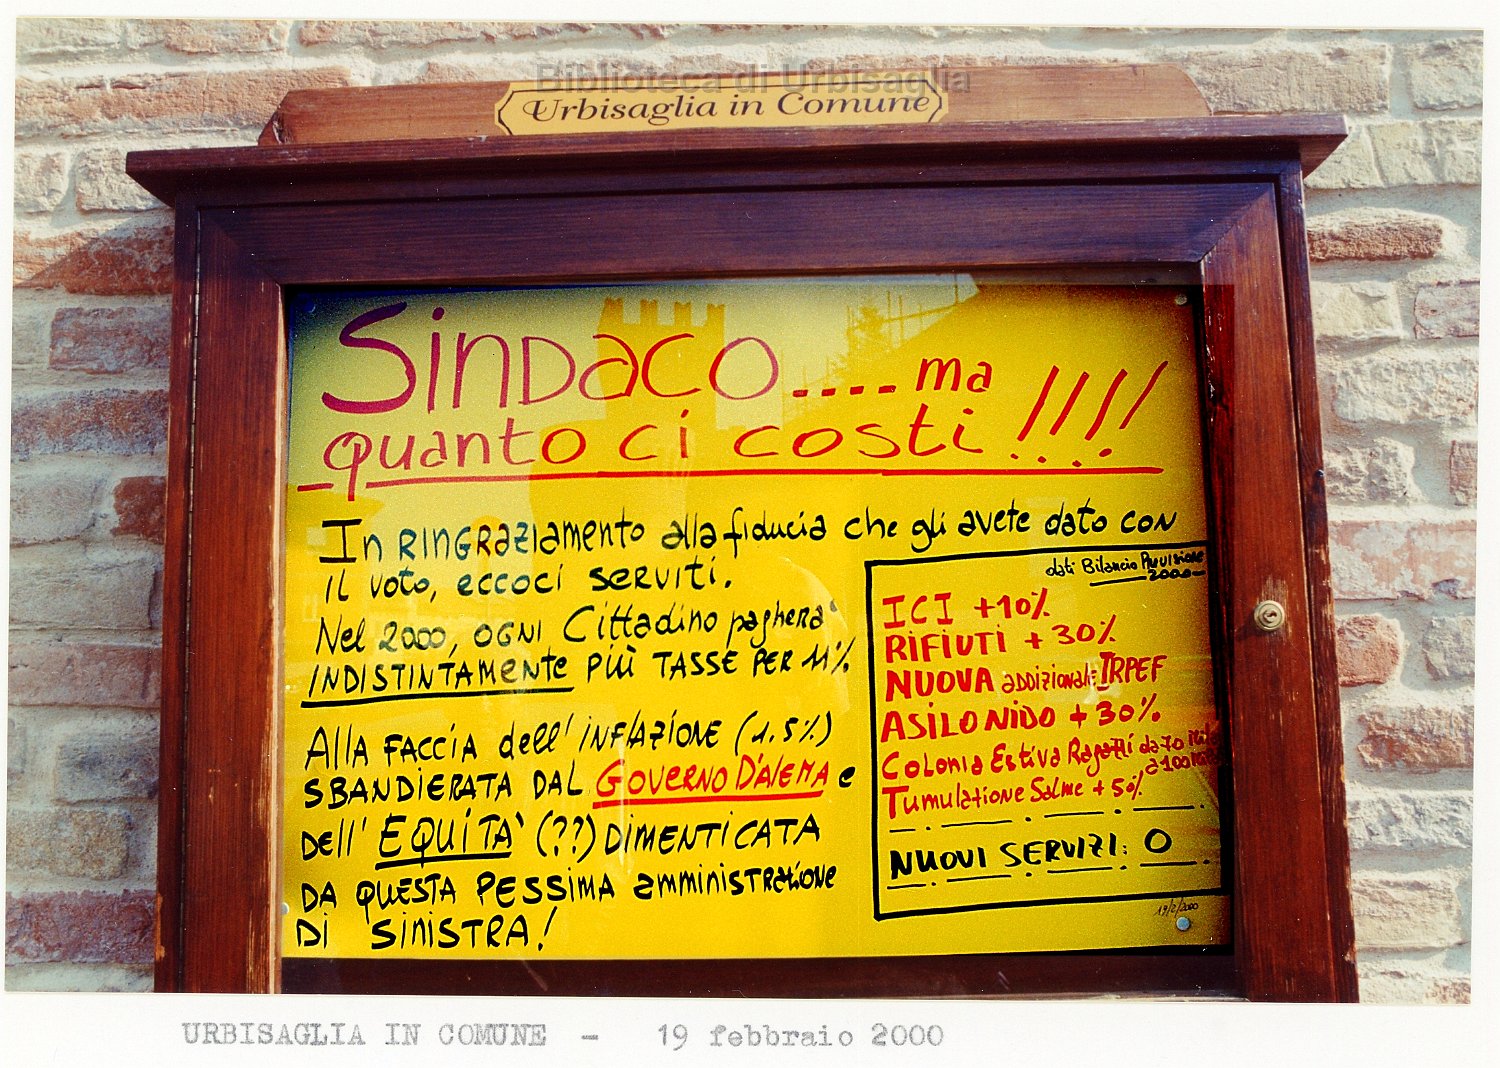 Biblioteca di Urbisaglia
Urbisaglia in Comune
Sindaco.... ma
quanto ci costi !!!!
In RINGRAZIAMENTO alla fiducia che gli avete dato con
il voto, eccoci SERVITI.
Nel 2000, OGNI Cittadino pagherà
INDISTINTAMENTE PIÙ TASSE PER 11%
Alla FACCIA dell'INFLAZIONE (1.5%)
SBANDIERATA DAL GOVERNO D'ALEMA e
Dell' EQUITA' (??) DIMENTICATA
DA QUESTA PESSIMA AMMINISTRAZIONE
DI SINISTRA!
dati Bilancio Previsione
2000
ICI +10%
RIFIUTI + 30%
NUOVA ADDIZIONALE IRPEF
ASILO NIDO + 30%
Colonia Estiva Ragazzi da 70
a 100
Tumulazione Salme + 50%
NUOVI SERVIZI: 0
19/2/2000
URBISAGLIA IN COMUNE - 19 febbraio 2000